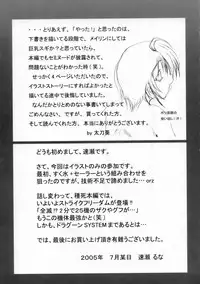 ・・・とりあえず、「やった！」と思ったのは、
下書きを描いてる段階で、メイリンにしては
巨乳スギか？と思っていたら、
本編でもセミヌードが披露されて、
問題ないことがわかった時（笑）。
せっかく4ページいただいたので、
イラストストーリーにすればよかったと
描いてる途中で後悔していました。
なんだかとりとめのない事書いてしまって
ごめんなさい。でも、買って下さった方、
そして読んでくれた方、本当にありがとうございます。
by 太刀美
どうも初めまして、速瀬です。
さて、今回はイラストのみの参加です。
最初、すく水・セーラーという組み合わせを
狙ったのですが、技術不足で諦めました… orz
話し変わって、種死本編では、
いよいよストライクフリーダムが登場！
「全滅!? 2分で25機のザクやグフが…」
もの機体最強かと（笑）
しかし、ドラグーンSYSTEMまであるとは…
では、最後にお買い上げ頂き有難うございました。
2005年 7月某日 速瀬 るな